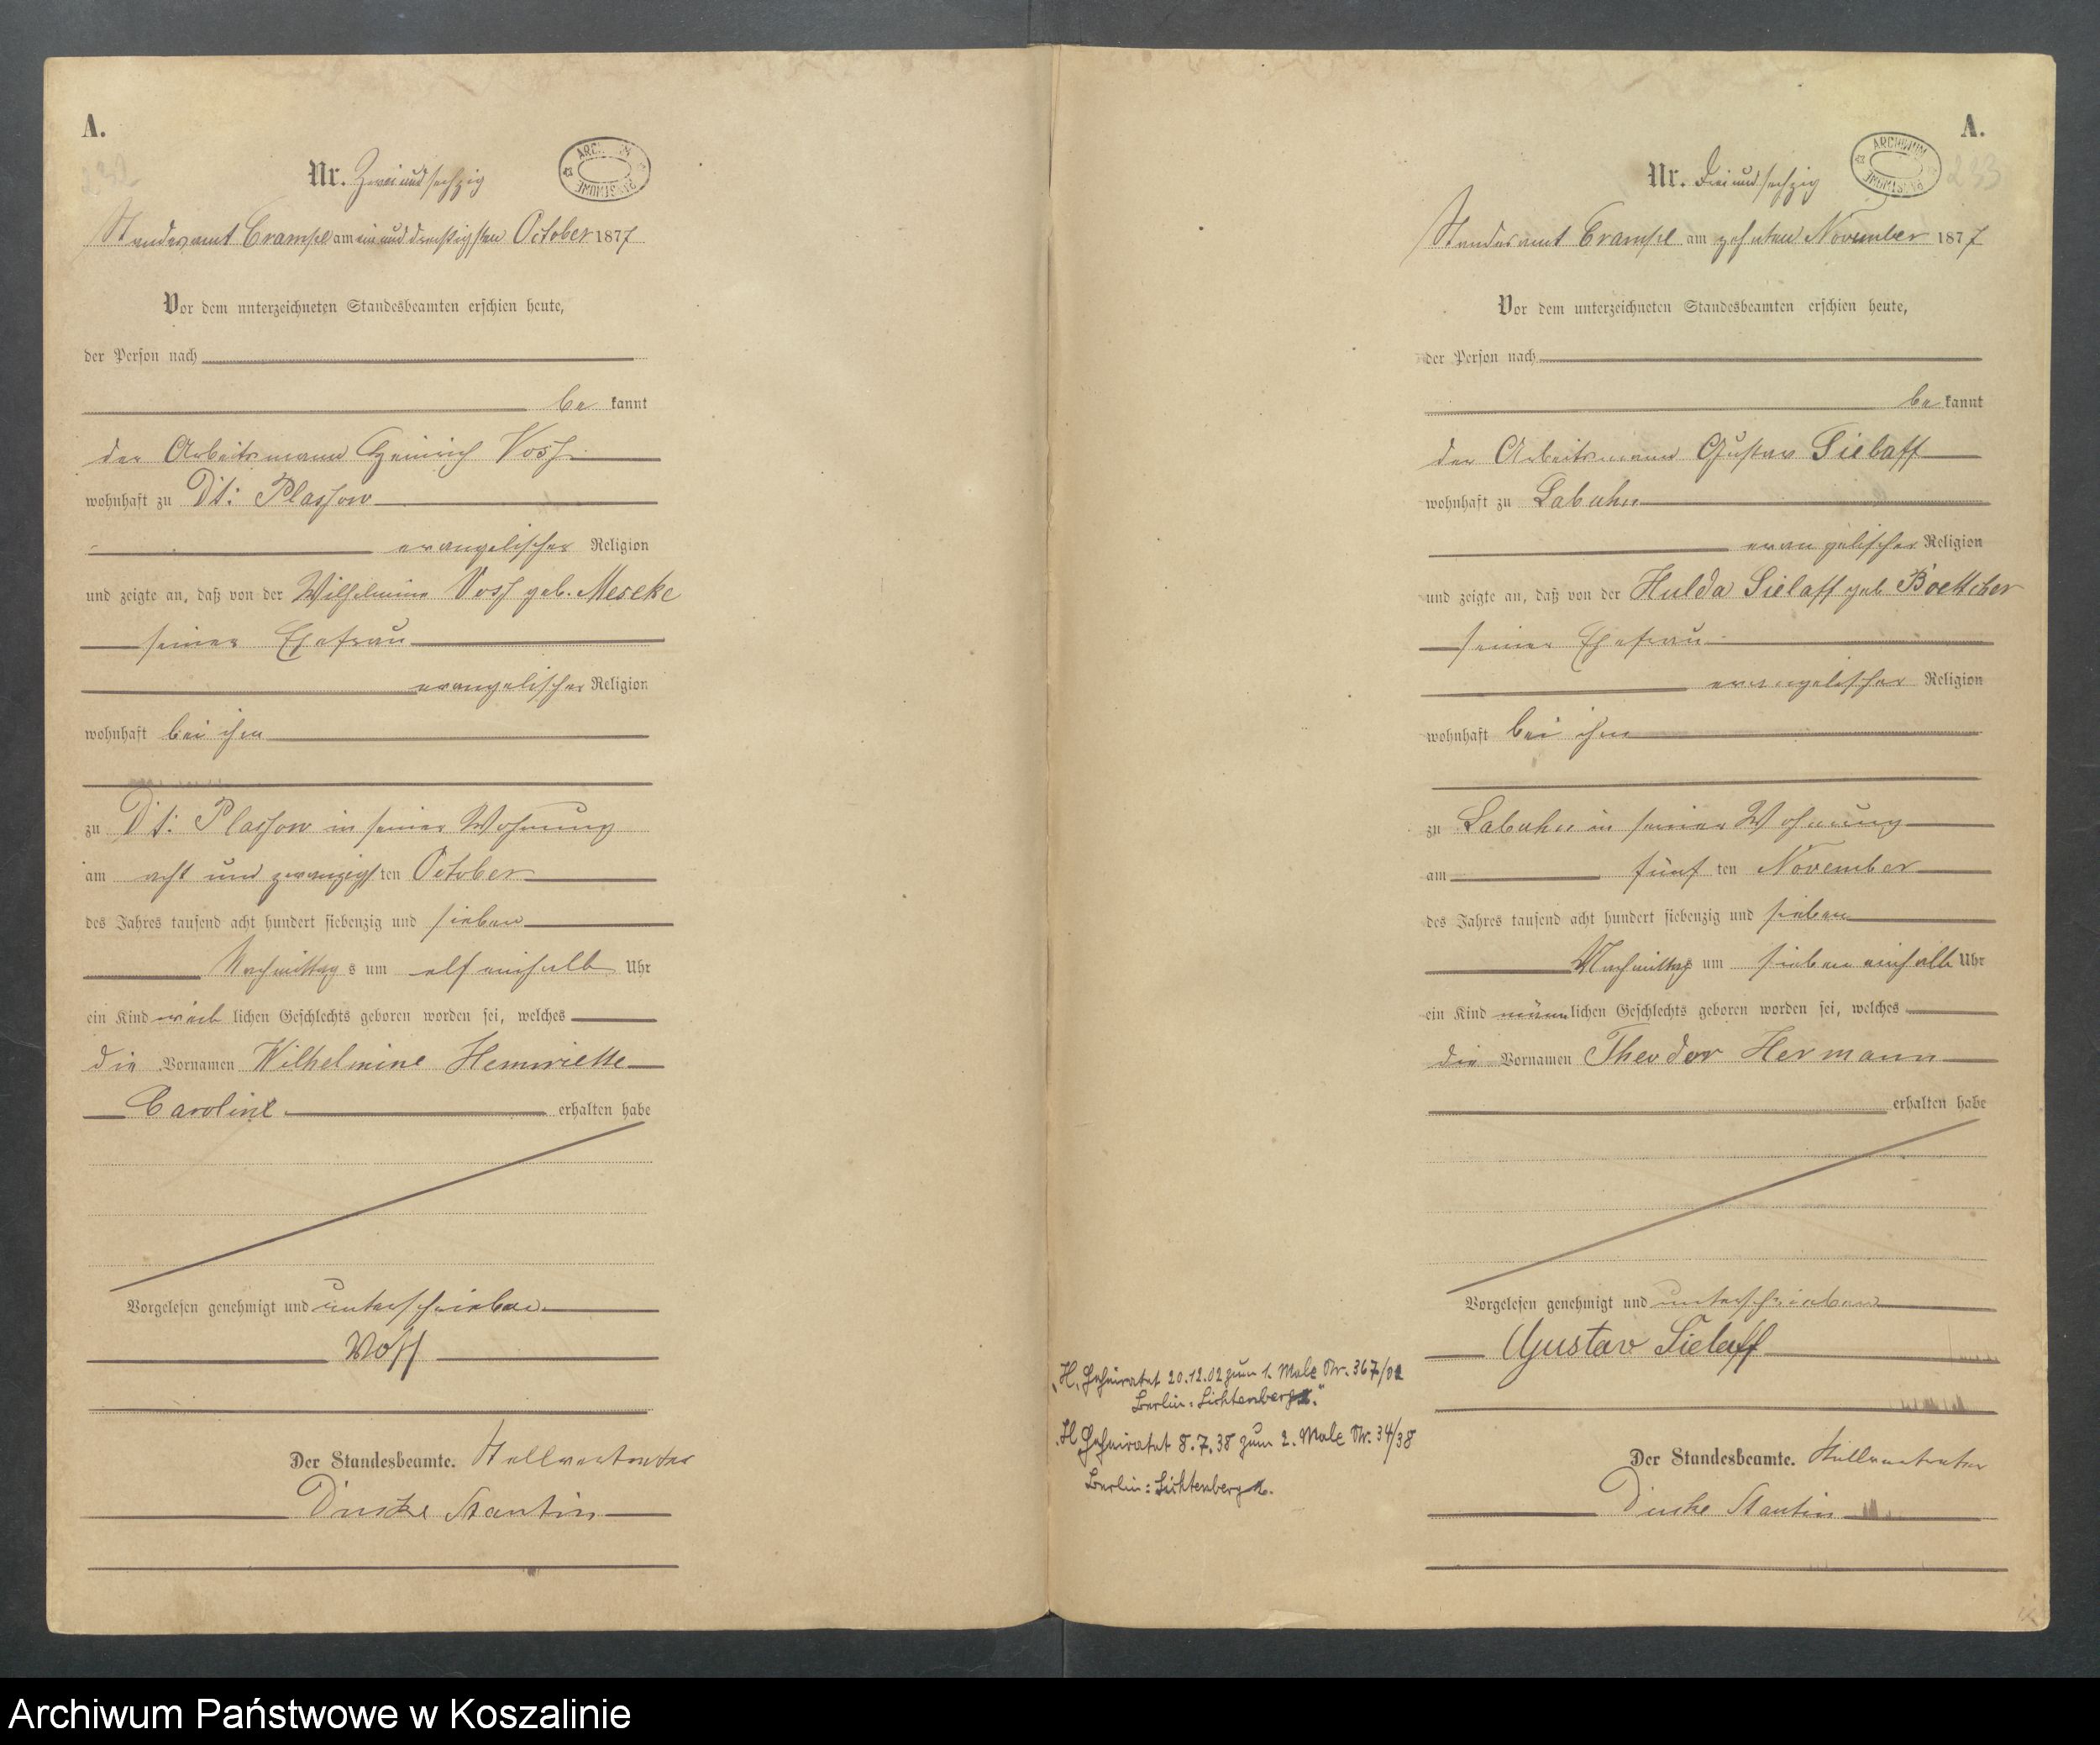 A.
Nr. Zwei und sechzig
ARCHIWUM PAŃSTWOWE
Standesamt Crampe am ein und dreißigsten October 1877
Vor dem unterzeichneten Standesbeamten erschien heute,
der Person nach
be kannt
der Arbeitsmann Heinrich Voß
wohnhaft zu Dt: Plassow
evangelischer Religion
und zeigte an, daß von der Wilhelmine Voss geb. Meseke
seiner Ehefrau
evangelischer Religion
wohnhaft bei ihm
zu Dt: Plassow in seiner Wohnung
am acht und zwanzigsten October
des Jahres tausend acht hundert siebenzig und sieben
Nachmittags um elf einhalb Uhr
ein Kind weiblichen Geschlechts geboren worden sei, welches
die Vornamen Wilhelmine Hennriette
Caroline erhalten habe
Vorgelesen genehmigt und unterschrieben
Voß
Der Standesbeamte. Stellvertreter
A.
Nr. Drei und sechzig
ARCHIWUM PAŃSTWOWE
233
Standesamt Crampe am zehnten November 1877
Vor dem unterzeichneten Standesbeamten erschien heute,
der Person nach
be kannt
der Arbeitsmann Gustav Sielaff
wohnhaft zu Labuhn
evangelischer Religion
und zeigte an, daß von der Hulda Sielaff geb Boettcher
seiner Ehefrau
evangelischer Religion
wohnhaft bei ihm
zu Labuhn in seiner Wohnung
am fünf ten November
des Jahres tausend acht hundert siebenzig und sieben
Nachmittags um sieben einhalb Uhr
ein Kind männlichen Geschlechts geboren worden sei, welches
die Vornamen Theodor Hermann
erhalten habe
Vorgelesen genehmigt und unterschrieben
Gustav Sielaff
„H. Geheiratet 20.12.02 zum 1. Male Nr. 367/02
Berlin-Lichtenberg."
„H. Geheiratet 8.7.38 zum 2. Male Nr. 34/38
Berlin: Lichtenberg.
Der Standesbeamte. Stellvertreter
Archiwum Państwowe w Koszalinie